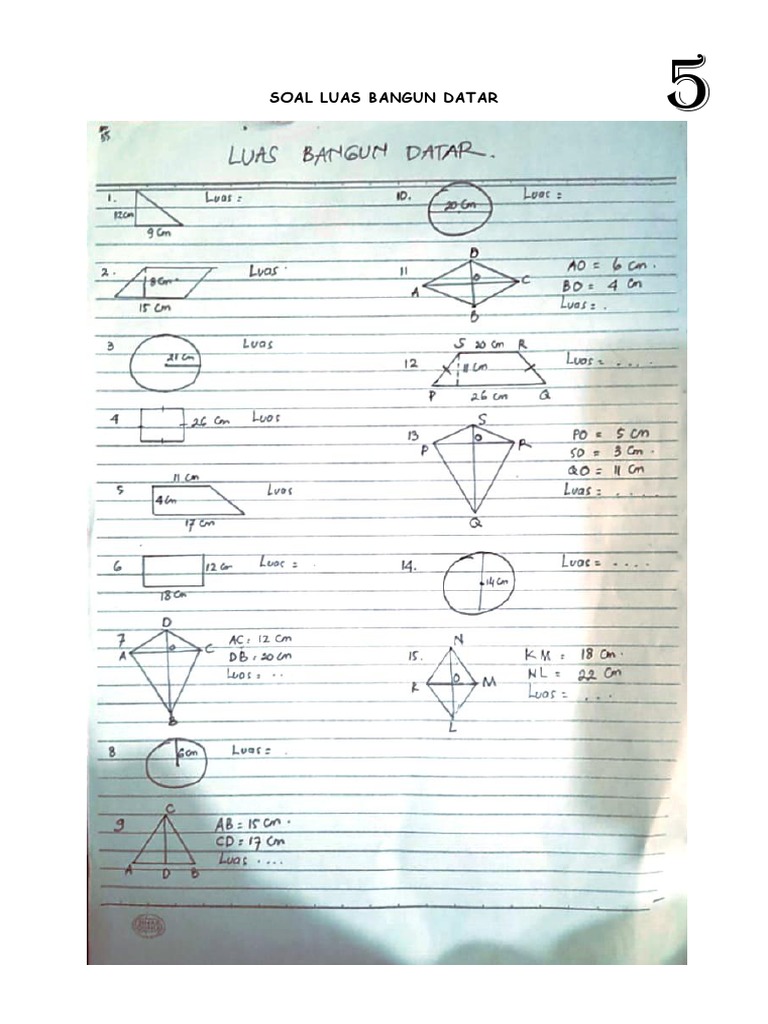 5
SOAL LUAS BANGUN DATAR
LUAS BANGUN DATAR.
1.
12cm
9 cm
Luas =
2.
8cm
15 cm
Luas
3
21 cm
Luas
4
26 cm
Luas
5
11 cm
4cm
17 cm
Luas
6
12 cm
18 cm
Luas =
7
D
A
O
C
B
AC = 12 cm
DB = 20 cm
Luas = ..
8
6cm
Luas = .
9
C
A D B
AB = 15 cm .
CD = 17 cm
Luas ....
10.
20 cm
Luas =
11
D
A
O
C
B
AO = 6 cm .
BO = 4 cm
Luas = .
12
S 20 cm R
11 cm
P 26 cm Q
Luas = ....
13
S
P
O
R
Q
PO = 5 cm
SO = 3 cm .
QO = 11 cm
Luas = ....
14.
14 cm
Luas = ....
15.
N
K
O
M
L
KM = 18 cm .
NL = 22 cm
Luas = ...